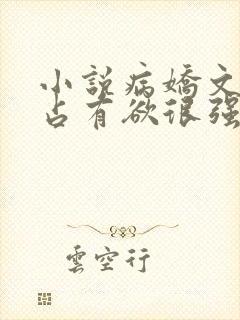 小說病嬌文
占有欲很強
雲空行